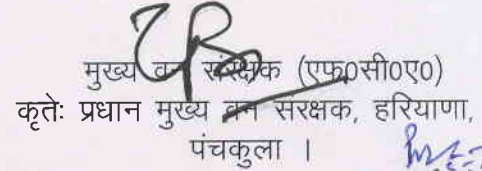 मुख्य वन संरक्षक (एफ0सी0ए0)
कृतेः प्रधान मुख्य वन सरक्षक, हरियाणा,
पंचकुला ।